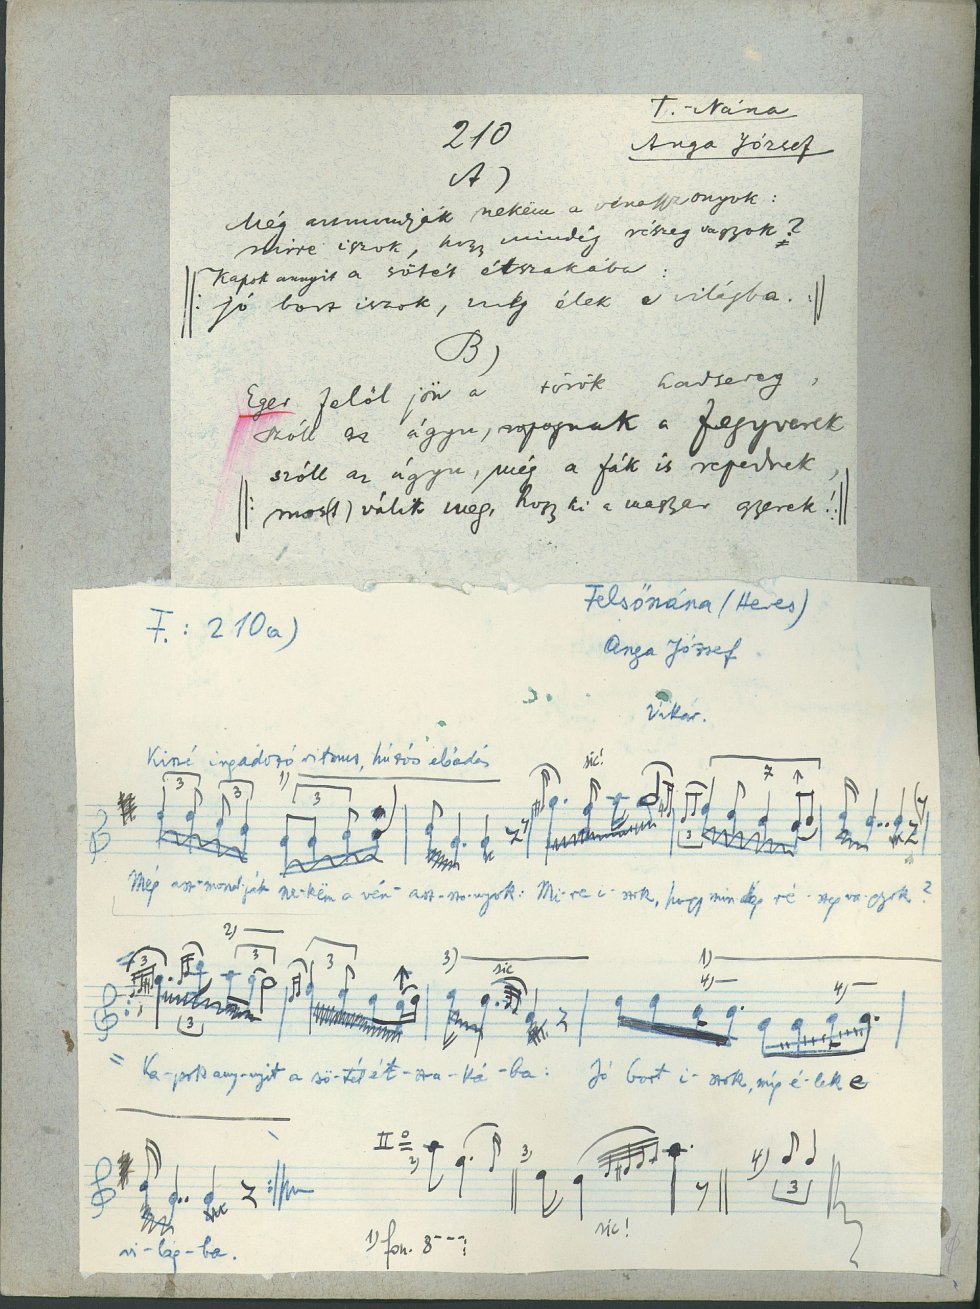 T.-Nána
210
Anga József
A)
Még asmondják nekëm a vénasszonyok:
mire iszok, hogy mindég részeg vagyok?
||: Kapok annyit a sötét étszakába:
jó bort iszok, míg élek e világba. :||
B)
Eger felől jön a török hadsereg,
szóll az ágyu, ropognak a fegyverek
szóll az ágyu, még a fák is repednek,
||: mos(t) válik meg, hogy ki a magyar gyerek! :||
Felsőnána (Heves)
F.: 210a)
Anga József
Vikár.
Kissé ingadozó ritmus, húzós előadás
sic!
3 3 1) 3 3 7
Még asz-mond-ják ne-këm a vén-asz-szo-nyok: Mi-re i-szok, hogy min-dég ré-szeg va-gyok?
3 2) 3 3 3) sic 1) 4) 4)
3
Ka-pok any-nyit a sö-tét ét-sza-ká-ba: Jó bort i-szok, míg é-lek e
II 2) 3) 4)
3
vi-lág-ba. 1) fon. 8---; sic!